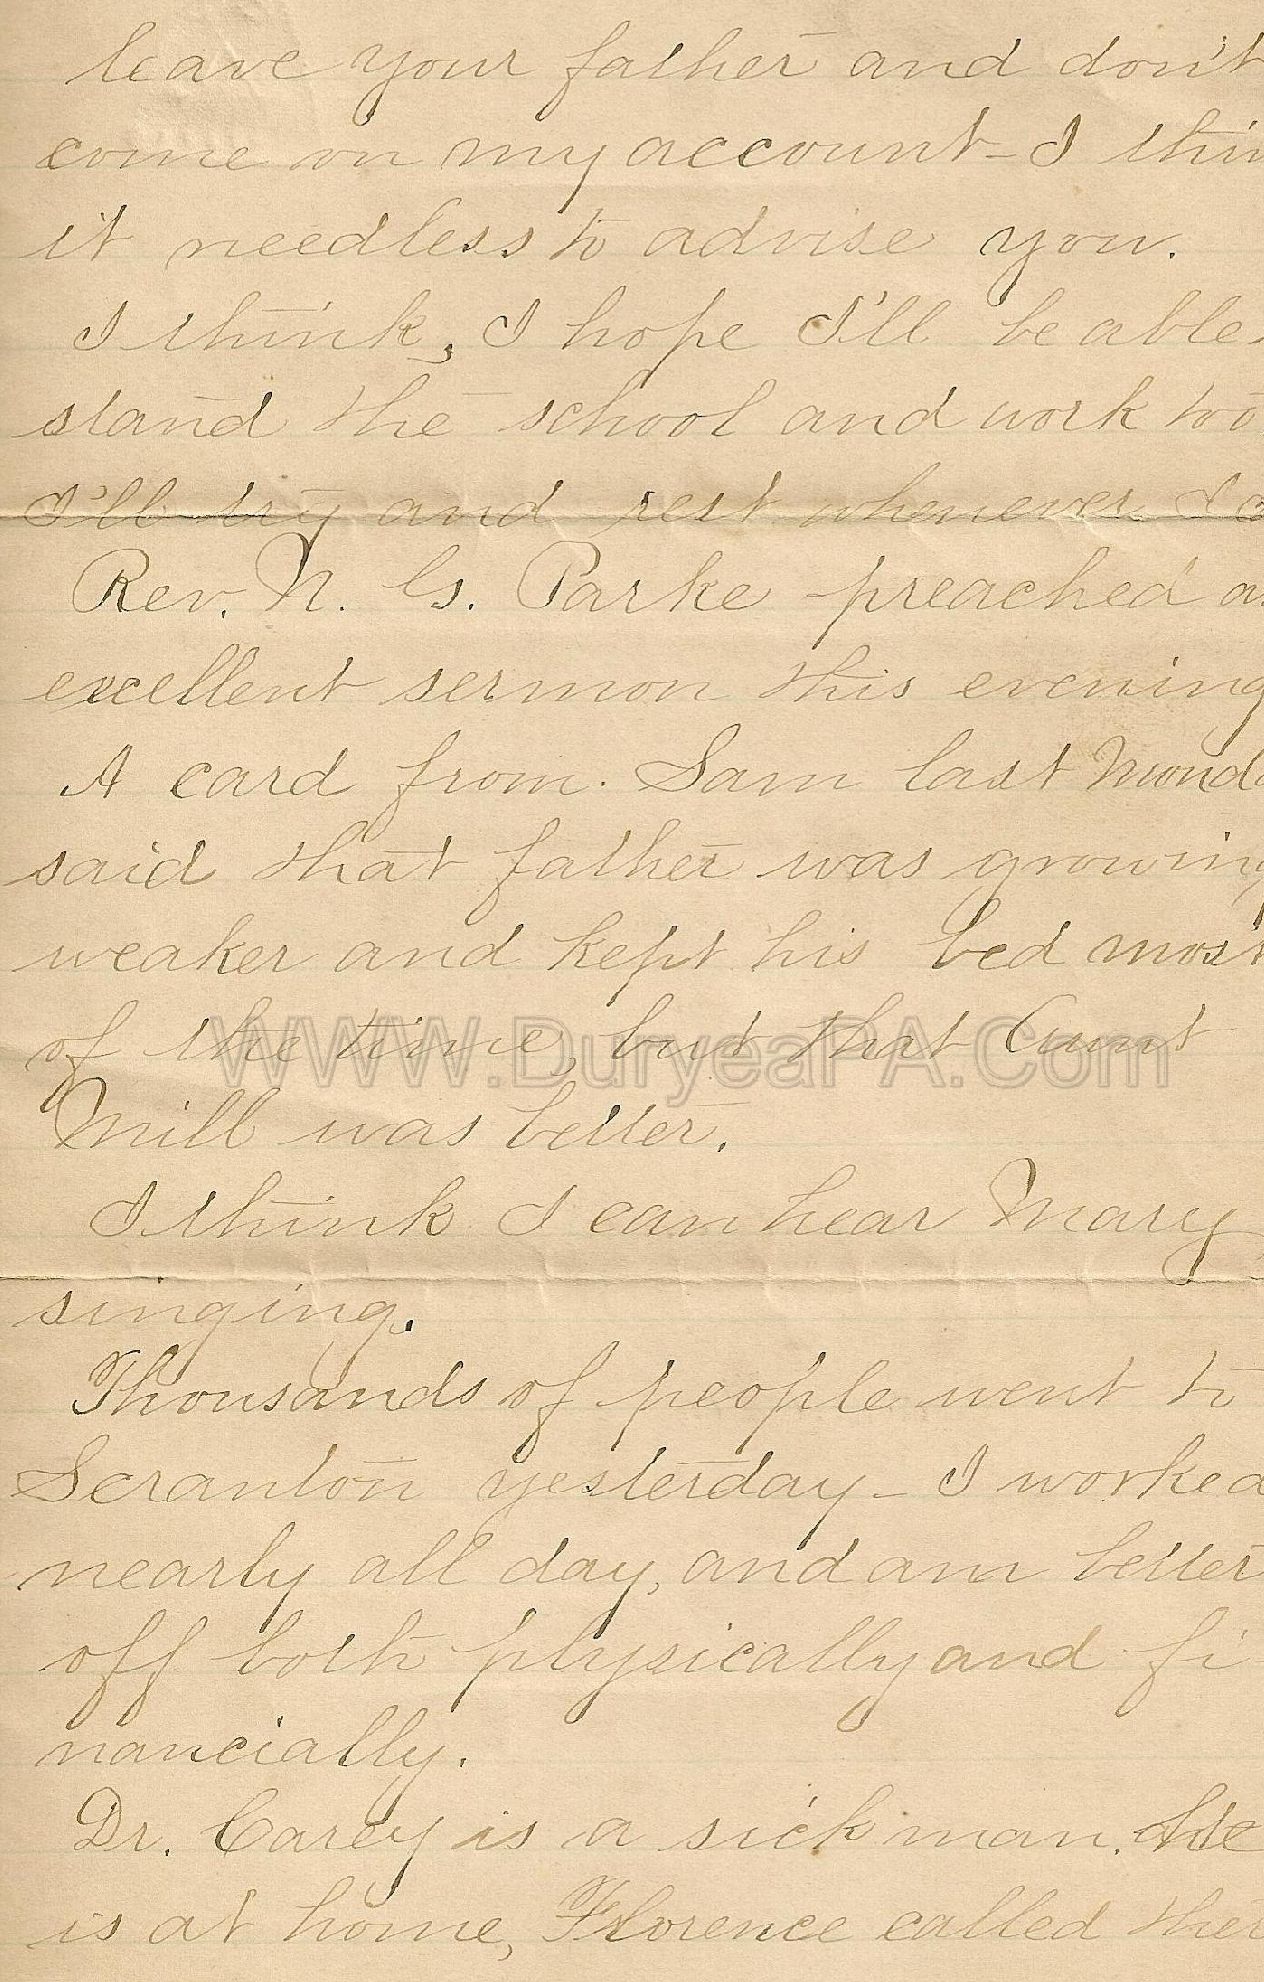 leave your father and don't
come on my account - I thin
it needless to advise you.
I think, I hope I'll be able
stand the school and work too
I'll try and rest whenever I c
Rev. N. G. Parke preached a
excellent sermon this evening
A card from Sam last Mond
said that father was growing
weaker and kept his bed most
of the time, but that Aunt
WWW.DuryeaPA.Com
Mill was better.
I think I can hear Mary
singing.
Thousands of people went to
Scranton yesterday - I worked
nearly all day, and am better
off both physically and fi
nancially.
Dr. Carey is a sick man. He
is at home, Florence called ther